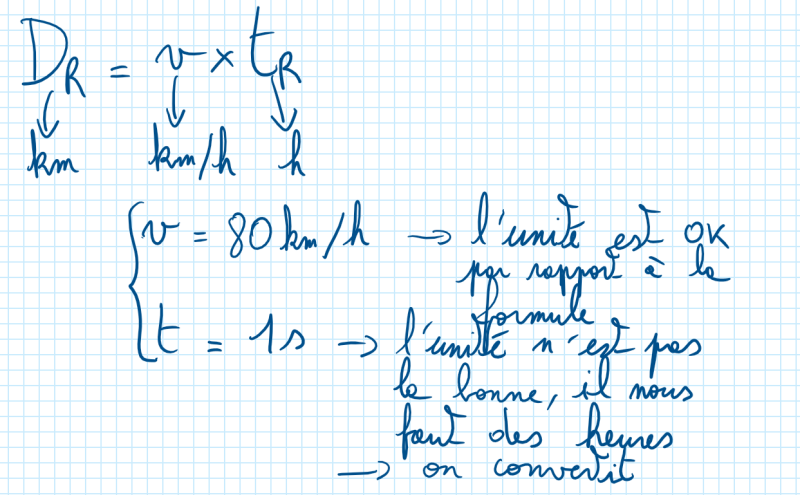 D_R = v × t_R
↓ ↓ ↓
km km/h h
{ v = 80 km/h → l'unité est OK
par rapport à la
formule
t = 1s → l'unité n'est pas
la bonne, il nous
faut des heures
→ on convertit